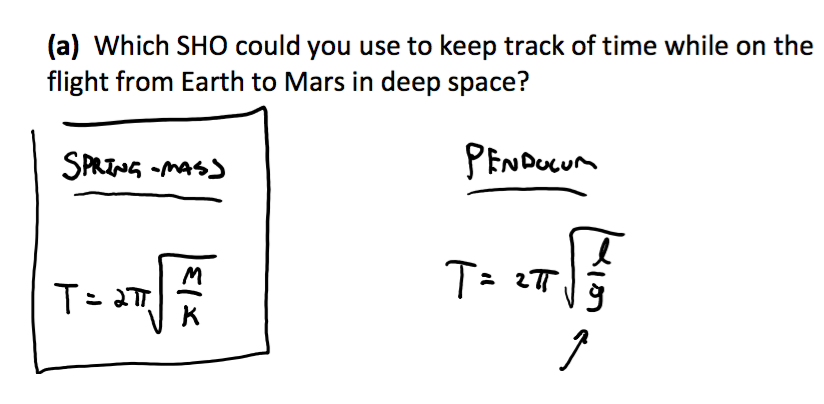 (a) Which SHO could you use to keep track of time while on the
flight from Earth to Mars in deep space?
SPRING-MASS
T = 2π√(M/K)
PENDULUM
T = 2π√(l/g)